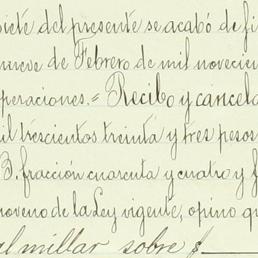 siete del presente se acabó de fi
nueve de Febrero de mil novecien
operaciones.= Recibo y cancela
mil trescientos treinta y tres pesos
B. fracción cuarenta y cuatro y f
noveno de la Ley vigente, opino qu
al millar sobre $